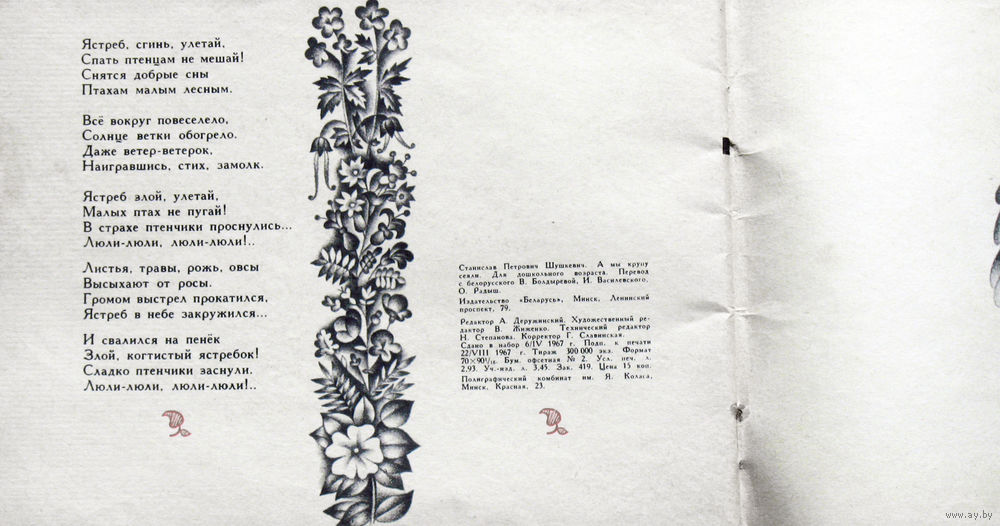 Ястреб, сгинь, улетай,
Спать птенцам не мешай!
Снятся добрые сны
Птахам малым лесным.
Всё вокруг повеселело,
Солнце ветки обогрело.
Даже ветер-ветерок,
Наигравшись, стих, замолк.
Ястреб злой, улетай,
Малых птах не пугай!
В страхе птенчики проснулись...
Люли-люли, люли-люли!..
Листья, травы, рожь, овсы
Высыхают от росы.
Громом выстрел прокатился,
Ястреб в небе закружился...
И свалился на пенёк
Злой, когтистый ястребок!
Сладко птенчики заснули.
Люли-люли, люли-люли!..
Станислав Петрович Шушкевич. А мы крупу
сеяли. Для дошкольного возраста. Перевод
с белорусского В. Болдыревой, И. Василевского,
О. Радыш.
Издательство «Беларусь», Минск, Ленинский
проспект, 79.
Редактор А. Деружинский. Художественный ре-
дактор В. Жиженко. Технический редактор
Н. Степанова. Корректор Г. Славинская.
Сдано в набор 6/IV 1967 г. Подп. к печати
22/VIII 1967 г. Тираж 300 000 экз. Формат
70×90¹/₁₆. Бум. офсетная № 2. Усл. печ. л.
2,93. Уч.-изд. л. 3,45. Зак. 419. Цена 15 коп.
Полиграфический комбинат им. Я. Коласа,
Минск, Красная, 23.
www.ay.by